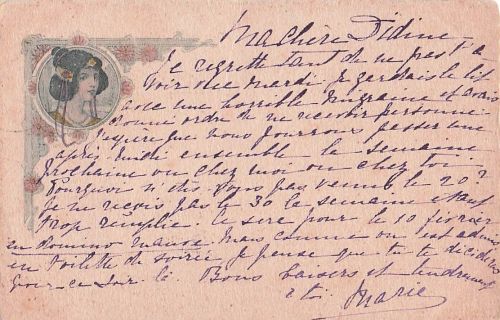 Ma chère Didine
Je regrette tant de ne pas t'a
voir vue mardi je gardais le lit
avec une horrible migraine et avais
donné ordre de ne recevoir personne
J'espère que nous pourrons passer une
après midi ensemble la semaine
prochaine ou chez moi ou chez toi
Pourquoi si dis vous pas venue le 20?
Je ne reçois pas le 30 la semaine étant
trop remplie. Ce sera pour le 10 février
en domino mauve. Mais comme on est admis
en toilette de soirée je pense que tu te décideras
pour ce soir là. Bons baisers et tendrement
à toi Marie